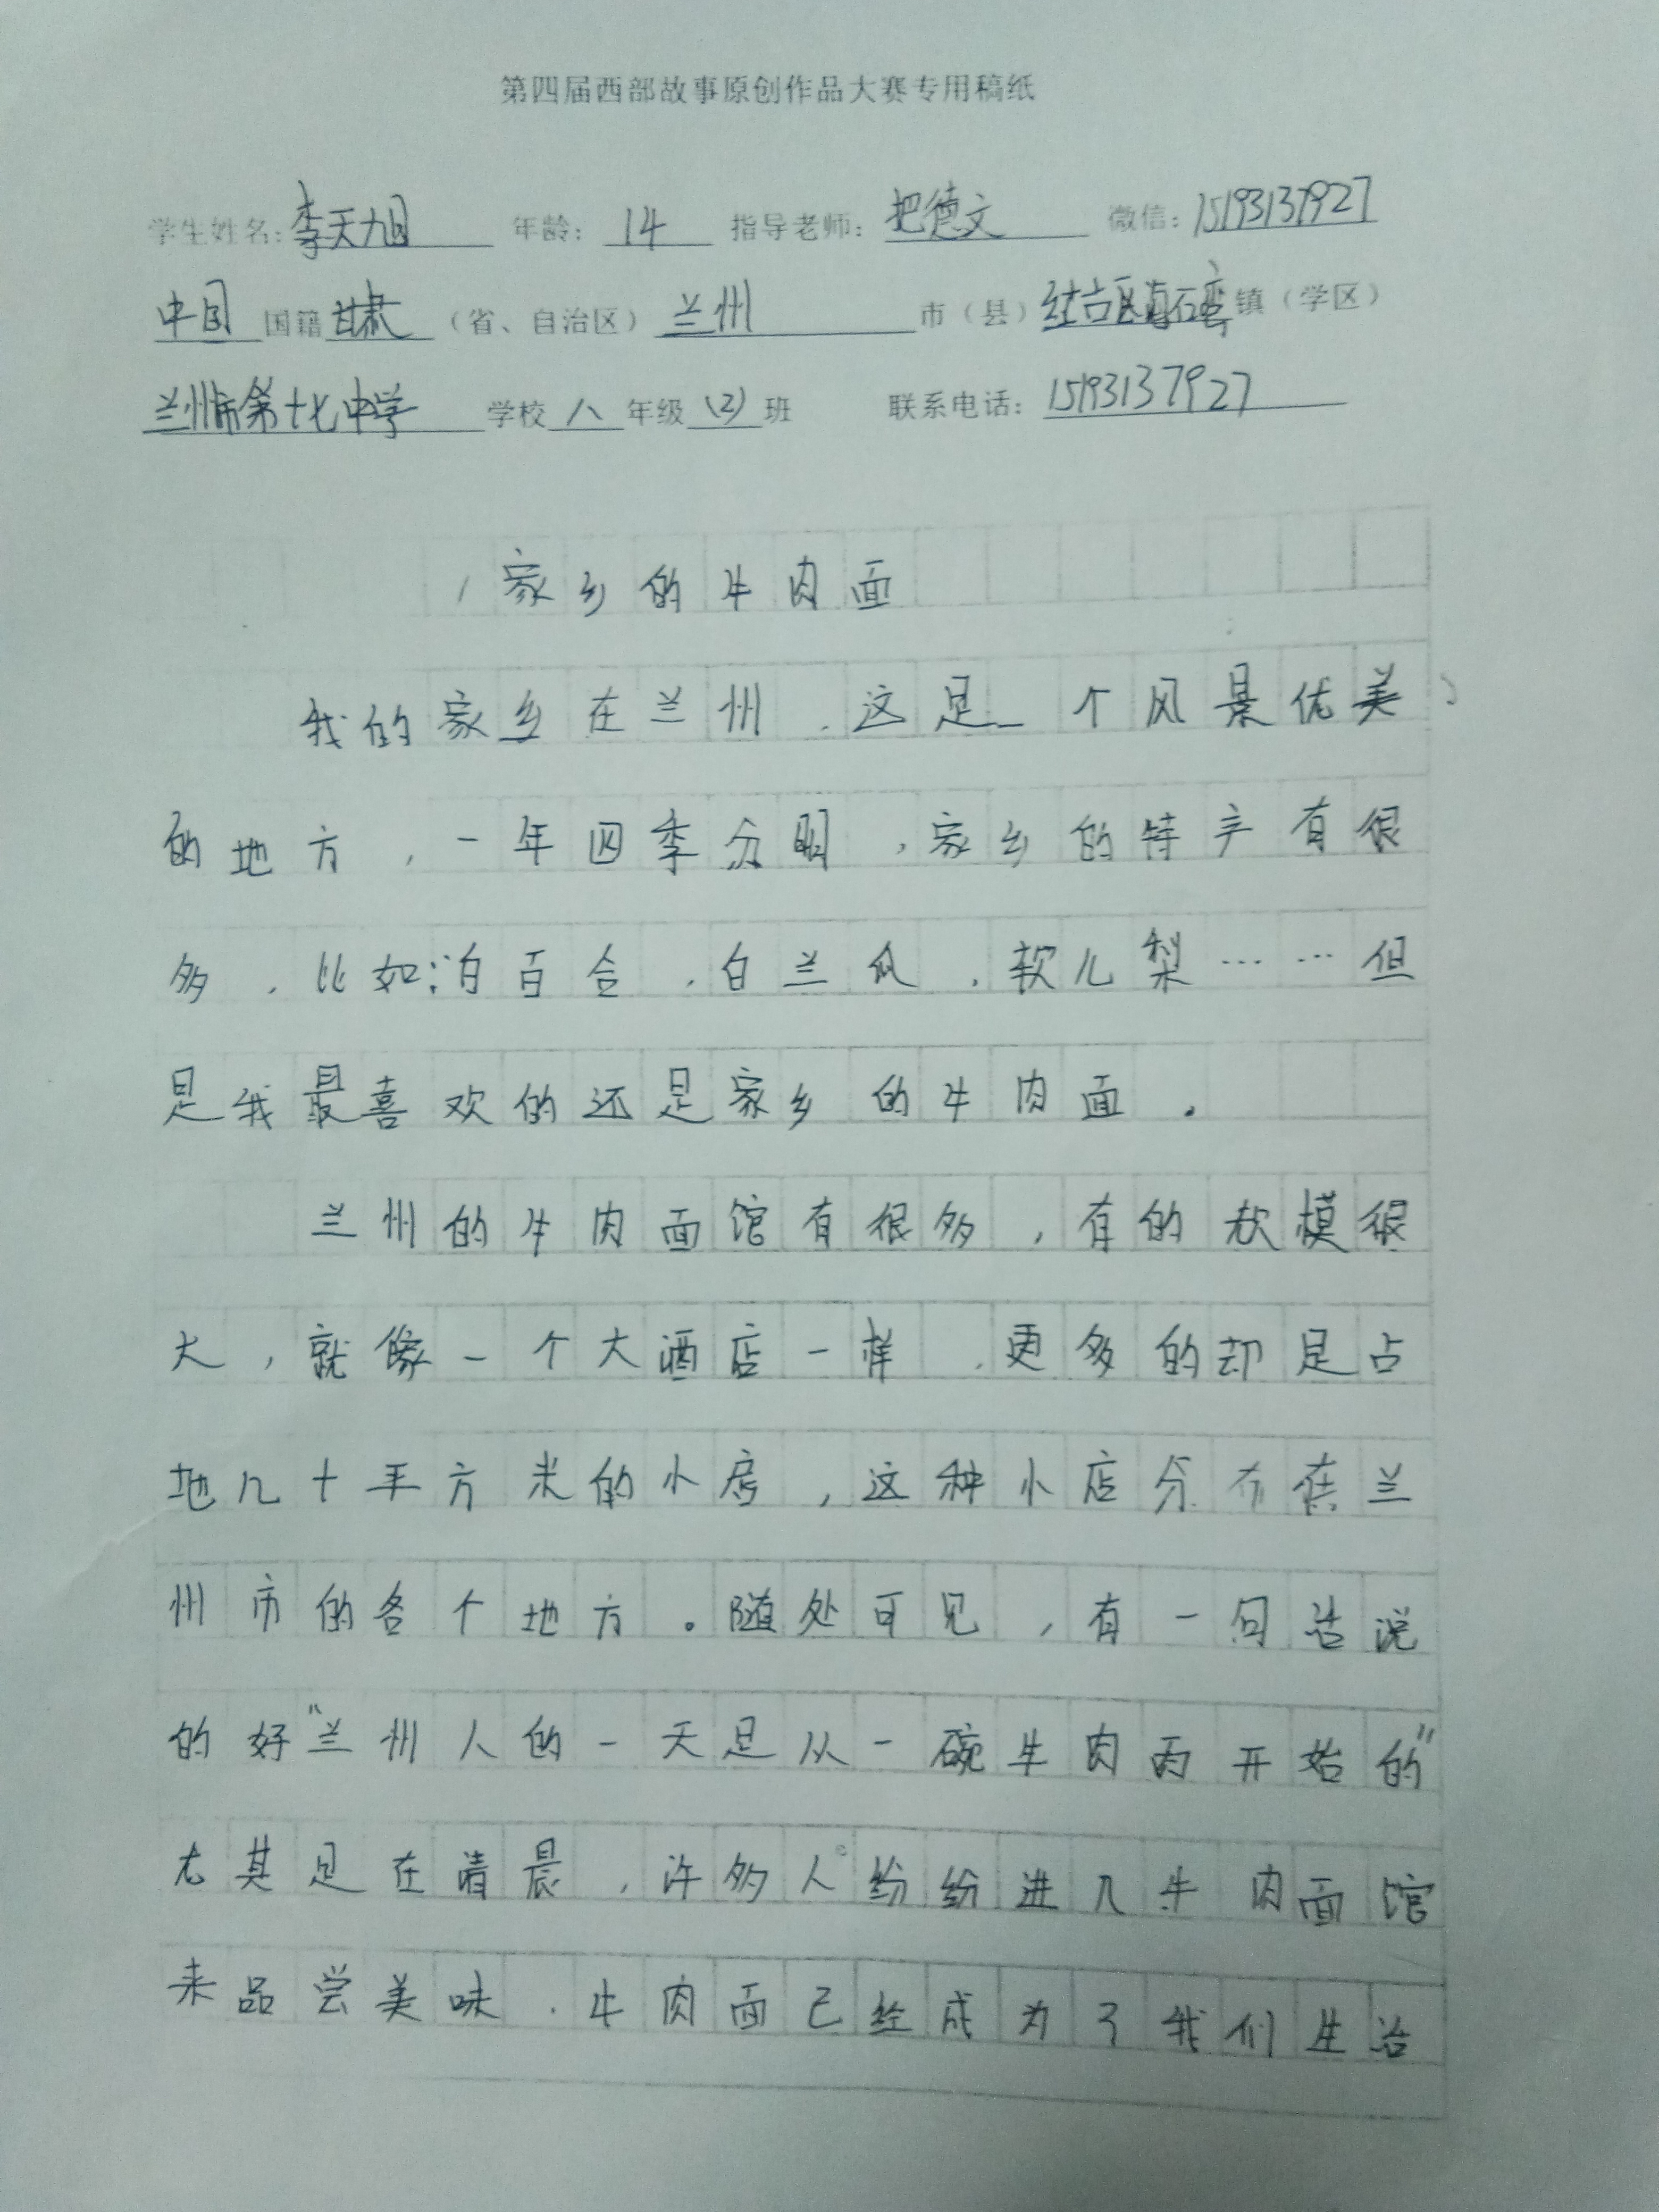 第四届西部故事原创作品大赛专用稿纸
学生姓名:李天旭 年龄:14 指导老师:把德文 微信:15193137927
中国国籍甘肃(省、自治区)兰州市(县)红古区海石湾镇(学区)
兰州市第十七中学学校八年级(2)班 联系电话:15193137927
家乡的牛肉面
我的家乡在兰州,这是一个风景优美
的地方,一年四季分明,家乡的特产有很
多,比如:白百合,白兰瓜,软儿梨……但
是我最喜欢的还是家乡的牛肉面。
兰州的牛肉面馆有很多,有的规模很
大,就像一个大酒店一样,更多的却是占
地几十平方米的小店,这种小店分布在兰
州市的各个地方。随处可见,有一句话说
的好"兰州人的一天是从一碗牛肉面开始的"
尤其是在清晨,许多人纷纷进入牛肉面馆
来品尝美味,牛肉面已经成为了我们生活